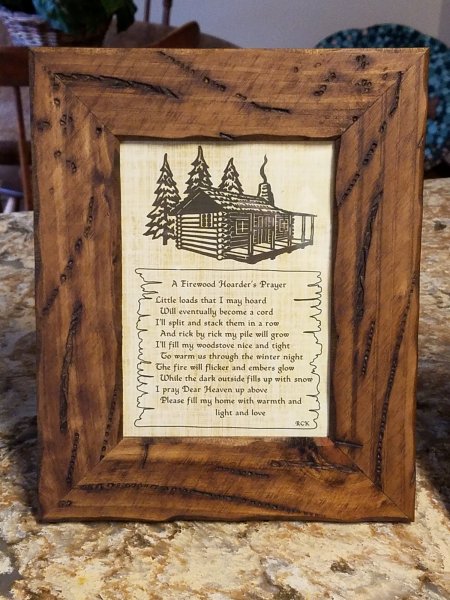 A Firewood Hoarder's Prayer
Little loads that I may hoard
Will eventually become a cord
I'll split and stack them in a row
And rick by rick my pile will grow
I'll fill my woodstove nice and tight
To warm us through the winter night
The fire will flicker and embers glow
While the dark outside fills up with snow
I pray Dear Heaven up above
Please fill my home with warmth and
light and love
RCK